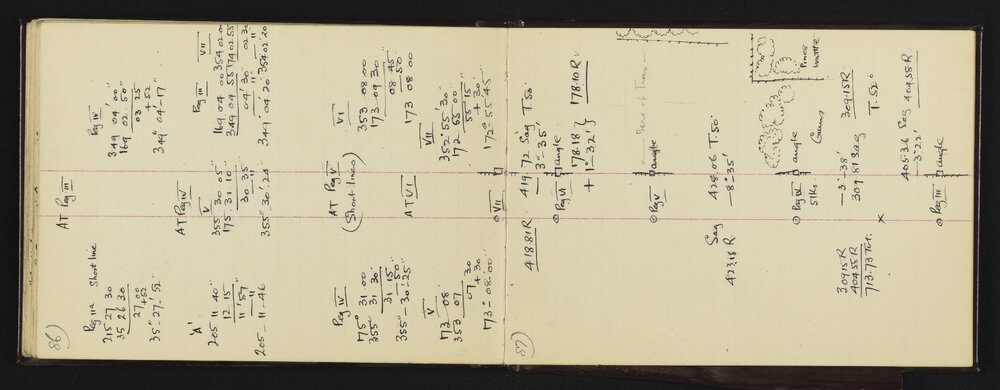 86)
AT Peg III
Peg IIa Short line Peg IV
215 27 30 349 04' 00"
35 26 30 169 02 50"
27,00 03 25
+52 +52
35°-27'-52" 349° 04'-17"
AT Peg IV
'A' V Peg III VII
205 11 40" 355 30 05 169 04 00 354 02 00
12 15 175 31 10 349 04 55 174 02 55
11' 57 30 35 04' 30 02 30
-11 11 11 11
205-11-46 355° 30' 24" 349° 04' 20" 354° 02' 20
AT Peg V
(Short lines)
Peg IV VI
175° 31 00 353 08 00
355° 31 30 173 09 30
31 15 08 45
-50 -50
355°-30'-25" 173 08 00
AT VI
V VII
173 08 352° 55' 30
353 07 172 55 00
07 + 30 55 15
+ 30 + 30
173-08-00 172° 55 45"
87)
VII
418.81R 419.72 Sag T.50
-3°-35'
Peg VI angle
+ 1° 32' } 178.18 178.10 R
Peg V angle
Sag 428.06 T.50
423.18 R -8°-35'
Peg IV angle Pines wattle
stks Gums
309.15R -3°+38' 309.15R
404.58R 309.81 Sag T.52
713.73 Tot. x
405.36 Sag 404.58R
-3°22'
Peg III angle